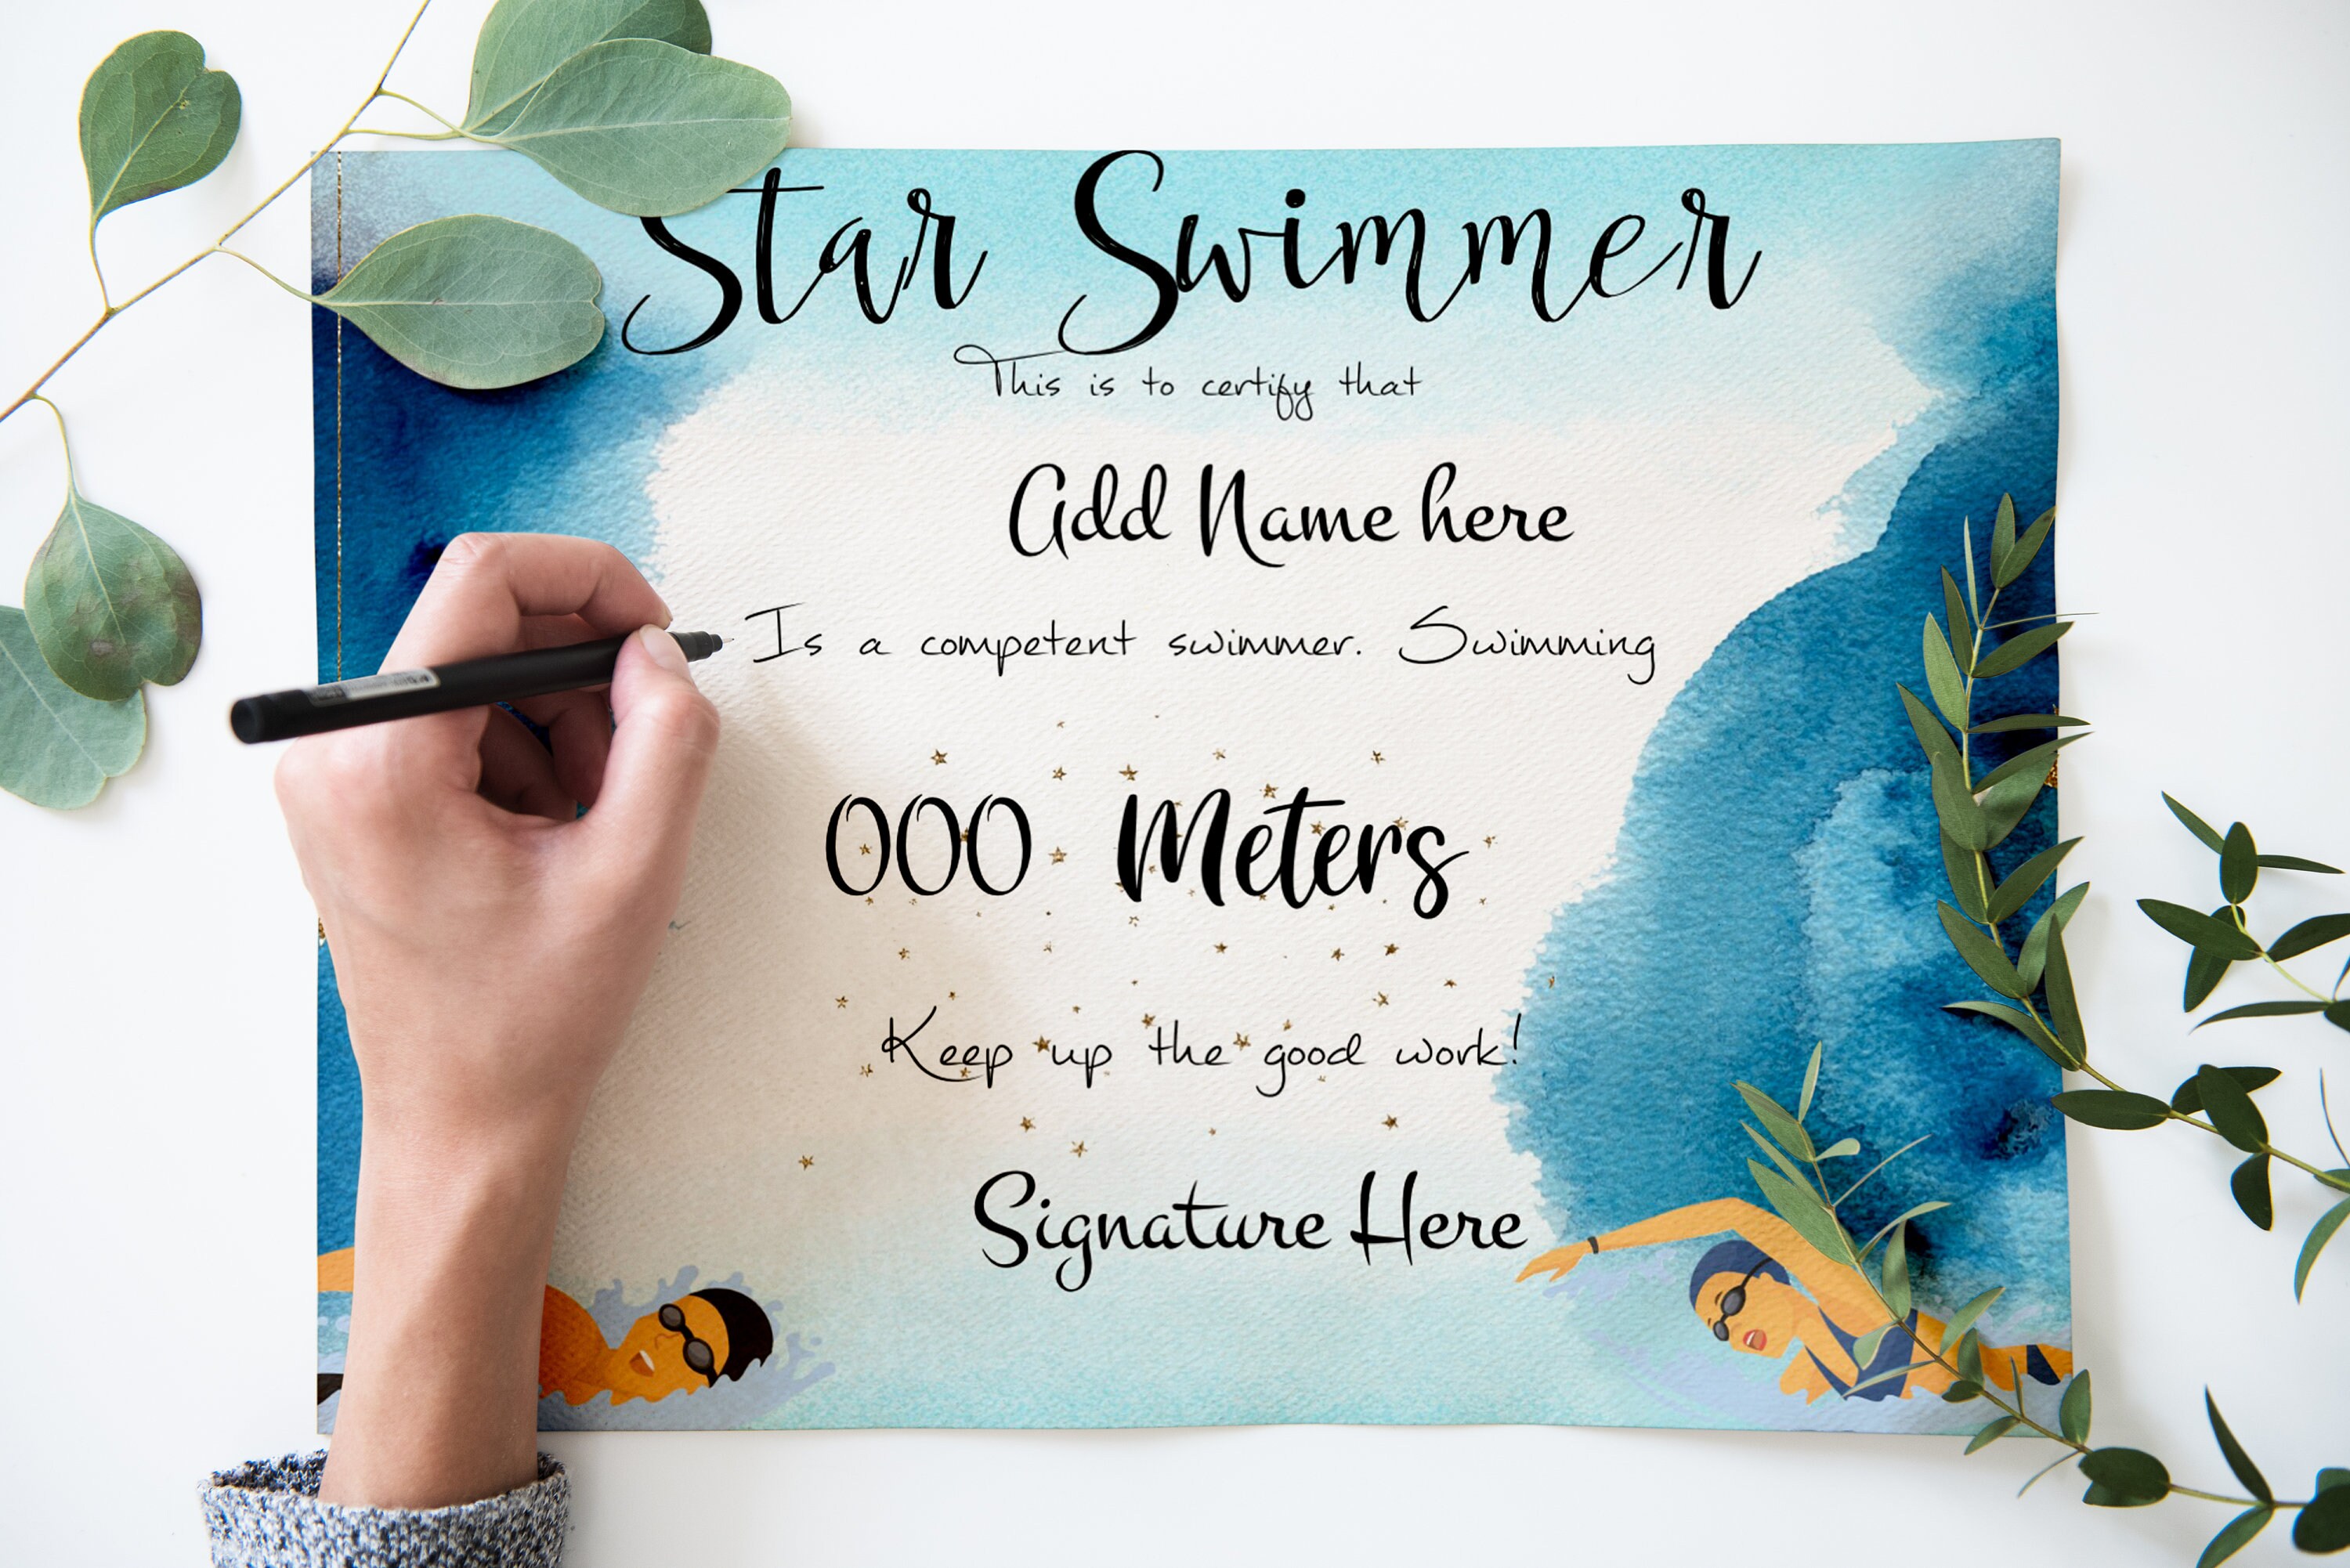 Star Swimmer
This is to certify that
Add Name here
Is a competent swimmer. Swimming
000 Meters
Keep up the good work!
Signature Here